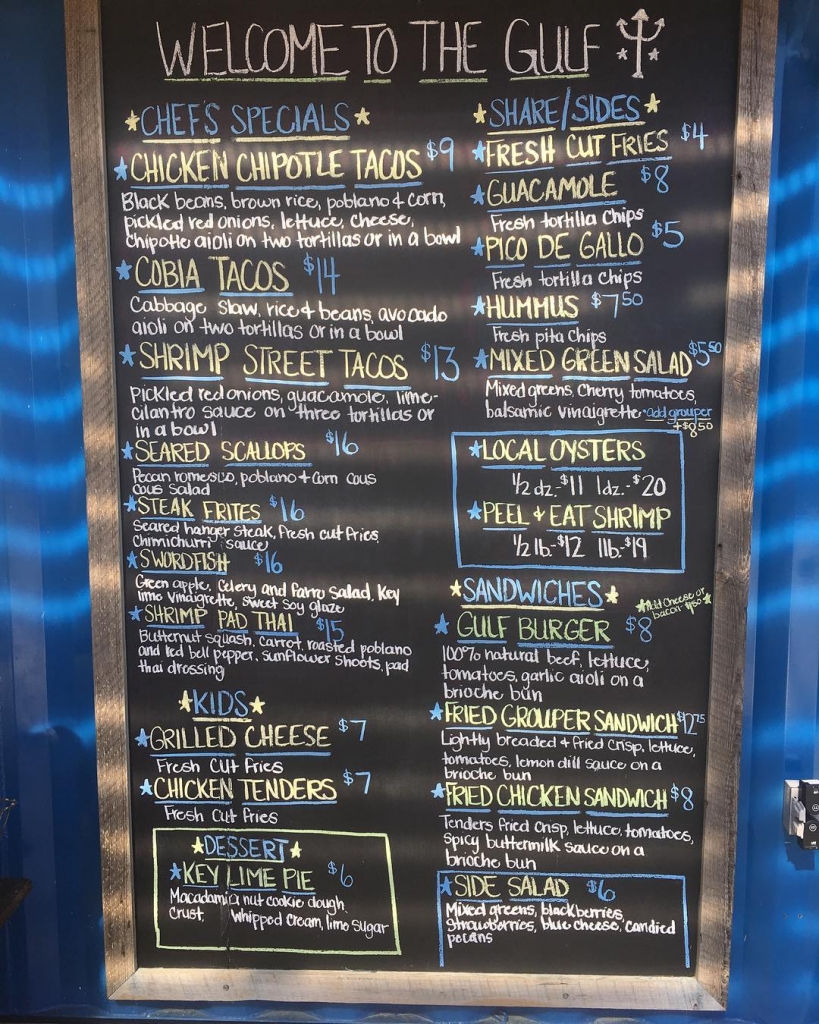 WELCOME TO THE GULF
CHEF'S SPECIALS
CHICKEN CHIPOTLE TACOS $9
Black beans, brown rice, poblano & corn,
pickled red onions, lettuce, cheese,
chipotle aioli on two tortillas or in a bowl
COBIA TACOS $14
Cabbage slaw, rice & beans, avocado
aioli on two tortillas or in a bowl
SHRIMP STREET TACOS $13
Pickled red onions, guacamole, lime-
cilantro sauce on three tortillas or
in a bowl
SEARED SCALLOPS $16
Pecan romesco, poblano & corn cous
cous salad
STEAK FRITES $16
Seared hanger steak, fresh cut fries,
Chimichurri sauce
SWORDFISH $16
Green apple, celery and farro salad, key
lime vinaigrette, sweet soy glaze
SHRIMP PAD THAI $15
Butternut squash, carrot, roasted poblano
and red bell pepper, sunflower shoots, pad
thai dressing
KIDS
GRILLED CHEESE $7
Fresh cut fries
CHICKEN TENDERS $7
Fresh cut fries
DESSERT
KEY LIME PIE $6
Macadamia nut cookie dough
crust whipped cream, lime sugar
SHARE/SIDES
FRESH CUT FRIES $4
GUACAMOLE $8
Fresh tortilla chips
PICO DE GALLO $5
Fresh tortilla chips
HUMMUS $7.50
Fresh pita chips
MIXED GREEN SALAD $5.50
Mixed greens, cherry tomatoes,
balsamic vinaigrette *add grouper
+$8.50
LOCAL OYSTERS
1/2 dz.-$11 1dz.-$20
PEEL & EAT SHRIMP
1/2 lb-$12 1lb-$19
SANDWICHES
Add cheese or
bacon
GULF BURGER $8
100% natural beef, lettuce,
tomatoes, garlic aioli on a
brioche bun
FRIED GROUPER SANDWICH $12.75
Lightly breaded & fried crisp, lettuce,
tomatoes, lemon dill sauce on a
brioche bun
FRIED CHICKEN SANDWICH $8
Tenders fried crisp, lettuce, tomatoes,
spicy buttermilk sauce on a
brioche bun
SIDE SALAD $6
Mixed greens, blackberries,
strawberries, blue cheese, candied
pecans